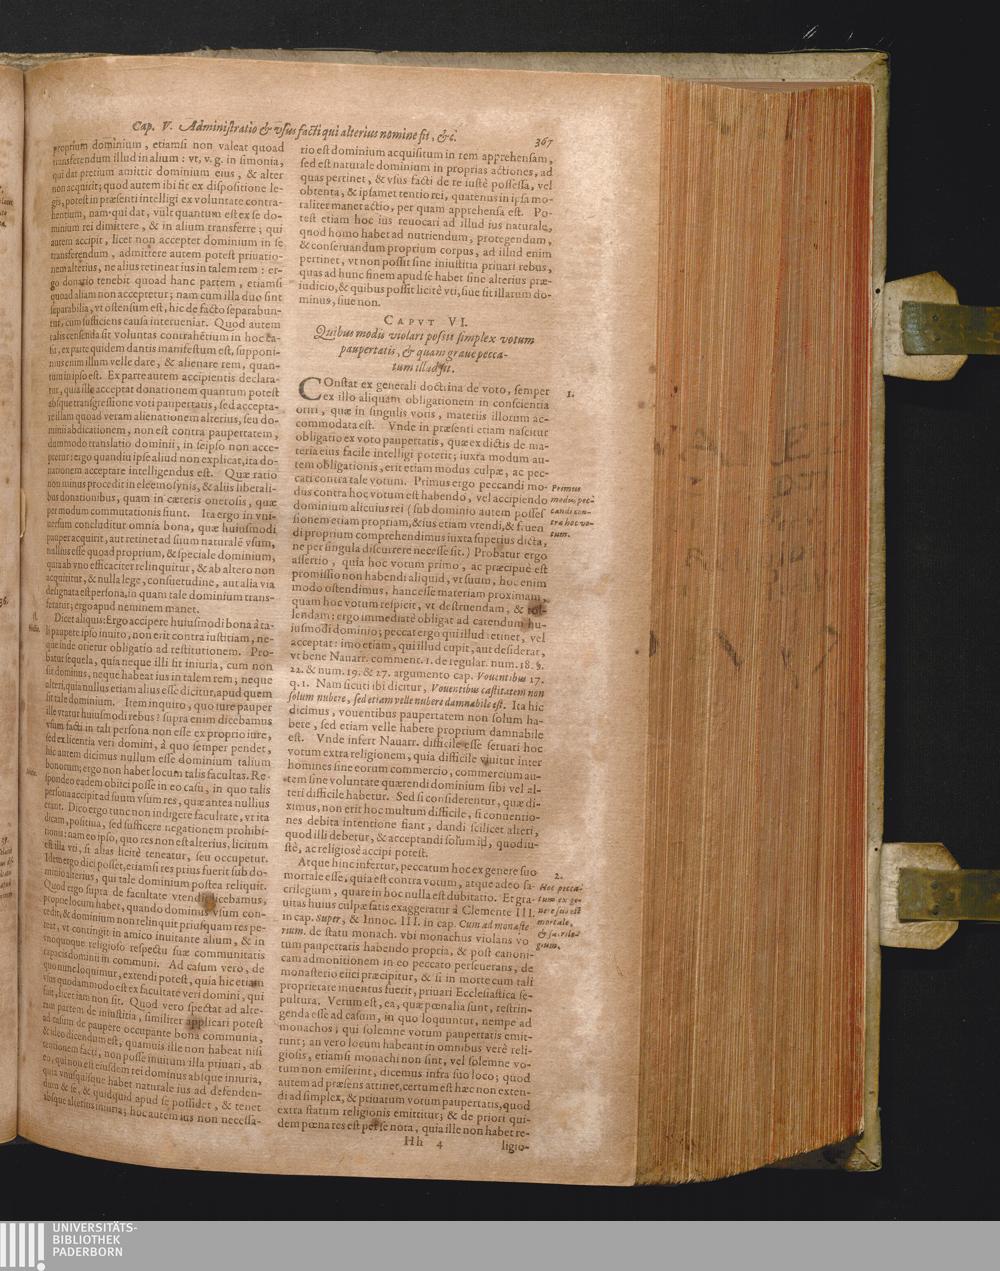 Cap. V. Administratio & vsus facti qui alterius nomine fit, &c. 367
proprium dominium, etiamsi non valeat quoad
transferendum illud in alium: vt, v. g. in simonia,
qui dat pretium amittit dominium eius, & alter
non acquirit; quod autem ibi fit ex dispositione le-
gis, potest in præsenti intelligi ex voluntate contra-
hentium, nam qui dat, vult quantum est ex se do-
minium rei dimittere, & in alium transferre; qui
autem accipit, licet non acceptet dominium in se
transferendum, admittere autem potest priuatio-
nem alterius, ne alius retineat ius in talem rem: er-
go donatio tenebit quoad hanc partem, etiamsi
quoad aliam non acceptetur; nam cum illa duo sint
separabilia, vt ostensum est, hic de facto separabun-
tur, cum sufficiens causa interueniat. Quod autem
talis censenda sit voluntas contrahētium in hoc ca-
su, ex parte quidem dantis manifestum est, supponi-
mus enim illum velle dare, & alienare rem, quan-
tum in ipso est. Ex parte autem accipientis declara-
tur, quia ille acceptat donationem quantum potest
absque transgressione voti paupertatis, sed accepta-
re illam quoad veram alienationem alterius, seu do-
minii abdicationem, non est contra paupertatem,
dummodo translatio dominii, in seipso non acce-
ptetur: ergo quandiu ipse aliud non explicat, ita do-
nationem acceptare intelligendus est. Quæ ratio
non minus procedit in eleemosynis, & aliis liberali-
bus donationibus, quam in cæteris onerosis, quæ
per modum commutationis fiunt. Ita ergo in vni-
uersum concluditur omnia bona, quæ huiusmodi
pauper acquirit, aut retinet ad suum naturalē vsum,
nullius esse quoad proprium, & speciale dominium,
quia ab vno efficaciter relinquitur, & ab altero non
acquiritur, & nulla lege, consuetudine, aut alia via
designata est persona, in quam tale dominium trans-
feratur; ergo apud neminem manet.
Dicet aliquis: Ergo accipere huiusmodi bona à ta-
li paupere ipso inuito, non erit contra iustitiam, ne-
que inde orietur obligatio ad restitutionem. Pro-
batur sequela, quia neque illi fit iniuria, cum non
sit dominus, neque habeat ius in talem rem; neque
alteri, quia nullus etiam alius esse dicitur, apud quem
sit tale dominium. Item inquiro, quo iure pauper
ille vtatur huiusmodi rebus? supra enim dicebamus
vsum facti in tali persona non esse ex proprio iure,
sed ex licentia veri domini, à quo semper pendet,
hic autem dicimus nullum esse dominium talium
bonorum; ergo non habet locum talis facultas. Re-
spondeo eadem obiici posse in eo casu, in quo talis
persona accipit ad suum vsum res, quæ antea nullius
erant. Dico ergo tunc non indigere facultate, vt ita
dicam, positiua, sed sufficere negationem prohibi-
tionis: nam eo ipso, quo res non est alterius, licitum
est illa vti, si alias licitè teneatur, seu occupetur.
Idem ergo dici posset, etiamsi res prius fuerit sub do-
minio alterius, qui tale dominium postea reliquit.
Quod ergo supra de facultate vtendi dicebamus,
proprie locum habet, quando dominus vsum con-
cedit, & dominium non relinquit priusquam res pe-
reat, vt contingit in amico inuitante alium, & in
vnoquoque religioso respectu suæ communitatis
capacis dominii in communi. Ad casum vero, de
quo nunc loquimur, extendi potest, quia hic etiam
vsus quodammodo est ex facultate veri domini, qui
fuit, licet iam non sit. Quod vero spectat ad alte-
ram partem de iniustitia, similiter applicari potest
ad casum de paupere occupante bona communia,
& ideo dicendum est, quamuis ille non habeat nisi
retentionem facti, non posse inuitum illa priuari, ab
eo, qui non est eiusdem rei dominus absque iniuria,
quia vnusquisque habet naturale ius ad defenden-
dum & se, & quidquid apud se possidet, & tenet
absque alterius iniuria; hoc autem ius non necessa-
rio est dominium acquisitum in rem apprehensam,
sed est naturale dominium in proprias actiones, ad
quas pertinet, & vsus facti de re iustè possessa, vel
obtenta, & ipsamet tentio rei, quatenus in ipsa mo-
raliter manet actio, per quam apprehensa est. Po-
test etiam hoc ius reuocari ad illud ius naturale,
quod homo habet ad nutriendum, protegendum,
& conseruandum proprium corpus, ad illud enim
pertinet, vt non possit sine iniustitia priuari rebus,
quas ad hunc finem apud se habet sine alterius præ-
iudicio, & quibus possit licitè vti, siue sit illarum do-
minus, siue non.
CAPVT VI.
Quibus modis violari possit simplex votum
paupertatis, & quam graue pecca-
tum illud sit.
COnstat ex generali doctrina de voto, semper
ex illo aliquam obligationem in conscientia
oriri, quæ in singulis votis, materiis illorum ac-
commodata est. Vnde in præsenti etiam nascitur
obligatio ex voto paupertatis, quæ ex dictis de ma-
teria eius facile intelligi poterit; iuxta modum au-
tem obligationis, erit etiam modus culpæ, ac pec-
cati contra tale votum. Primus ergo peccandi mo-
dus contra hoc votum est habendo, vel accipiendo
dominium alicuius rei (sub dominio autem posses
sionem etiam propriam, & ius etiam vtendi, & fruen
di proprium comprehendimus iuxta superius dicta,
ne per singula discurrere necesse sit.) Probatur ergo
assertio, quia hoc votum primo, ac præcipuè est
promissio non habendi aliquid, vt suum, hoc enim
modo ostendimus, hanc esse materiam proximam,
quam hoc votum respicit, vt destruendam, & tol-
lendam: ergo immediatè obligat ad carendum hu-
iusmodi dominio; peccat ergo qui illud retinet, vel
acceptat: imo etiam, qui illud cupit, aut desiderat,
vt bene Nauarr. comment. 1. de regular. num. 18. 8.
22. & num. 19. & 27. argumento cap. Vouentibus 17.
q. 1. Nam sicuti ibi dicitur, Vouentibus castitatem non
solum nubere, sed etiam velle nubere damnabile est. Ita hic
dicimus, vouentibus paupertatem non solum ha-
bere, sed etiam velle habere proprium damnabile
est. Vnde infert Nauarr. difficile esse seruari hoc
votum extra religionem, quia difficile viuitur inter
homines sine eorum commercio, commercium au-
tem sine voluntate quærendi dominium sibi vel al-
teri difficile habetur. Sed si considerentur, quæ di-
ximus, non erit hoc multum difficile, si conuentio-
nes debita intentione fiant, dandi scilicet alteri,
quod illi debetur, & acceptandi solum id, quod iu-
stè, ac religiosè accipi potest.
Atque hinc infertur, peccatum hoc ex genere suo
mortale esse, quia est contra votum, atque adeo sa-
crilegium, quare in hoc nulla est dubitatio. Et gra-
uitas huius culpæ satis exaggeratur à Clemente III.
in cap. Super, & Innoc. III. in cap. Cum ad monaste
rium. de statu monach. vbi monachus violans vo
tum paupertatis habendo propria, & post canoni-
cam admonitionem in eo peccato perseuerans, de
monasterio eiici præcipitur, & si in morte cum tali
proprietate inuentus fuerit, priuari Ecclesiastica se-
pultura. Verum est, ea, quæ pœnalia sunt, restrin-
genda esse ad casum, in quo loquuntur, nempe ad
monachos; qui solemne votum paupertatis emit-
tunt; an vero locum habeant in omnibus verè reli-
giosis, etiamsi monachi non sint, vel solemne vo-
tum non emiserint, dicemus infra suo loco; quod
autem ad præsens attinet, certum est hæc non exten-
di ad simplex, & priuatum votum paupertatis, quod
extra statum religionis emittitur; & de priori qui-
dem pœna res est per se nota, quia ille non habet re-
Hh 4 ligio-
1.
Primus
modus pec-
candi con-
tra hoc vo-
tum.
2.
Hoc pecca-
tum ex ge-
nere suo est
mortale,
& sacrile-
gium.
UNIVERSITÄTS-
BIBLIOTHEK
PADERBORN